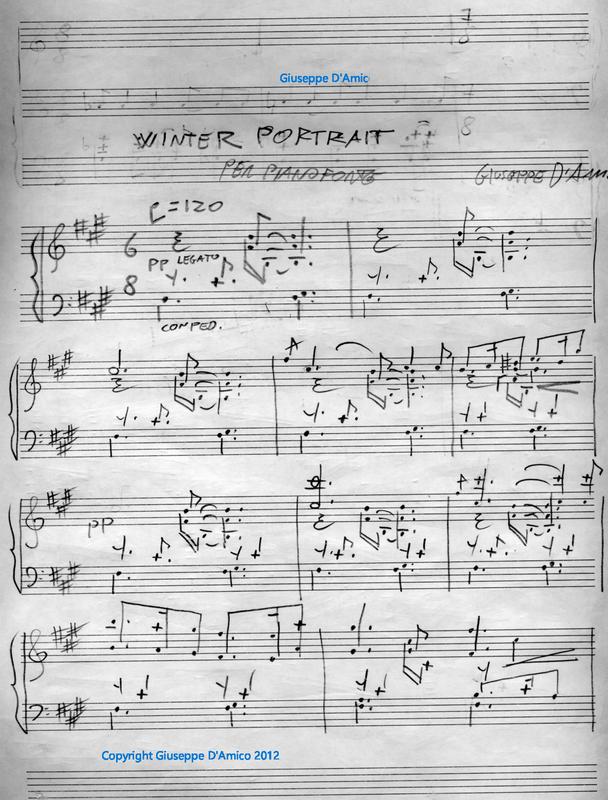 Giuseppe D'Amic
WINTER PORTRAIT
PER PIANOFORTE
GIUSEPPE D'Am
=120
6
8
PP LEGATO
CON PED.
A
PP
Copyright Giuseppe D'Amico 2012